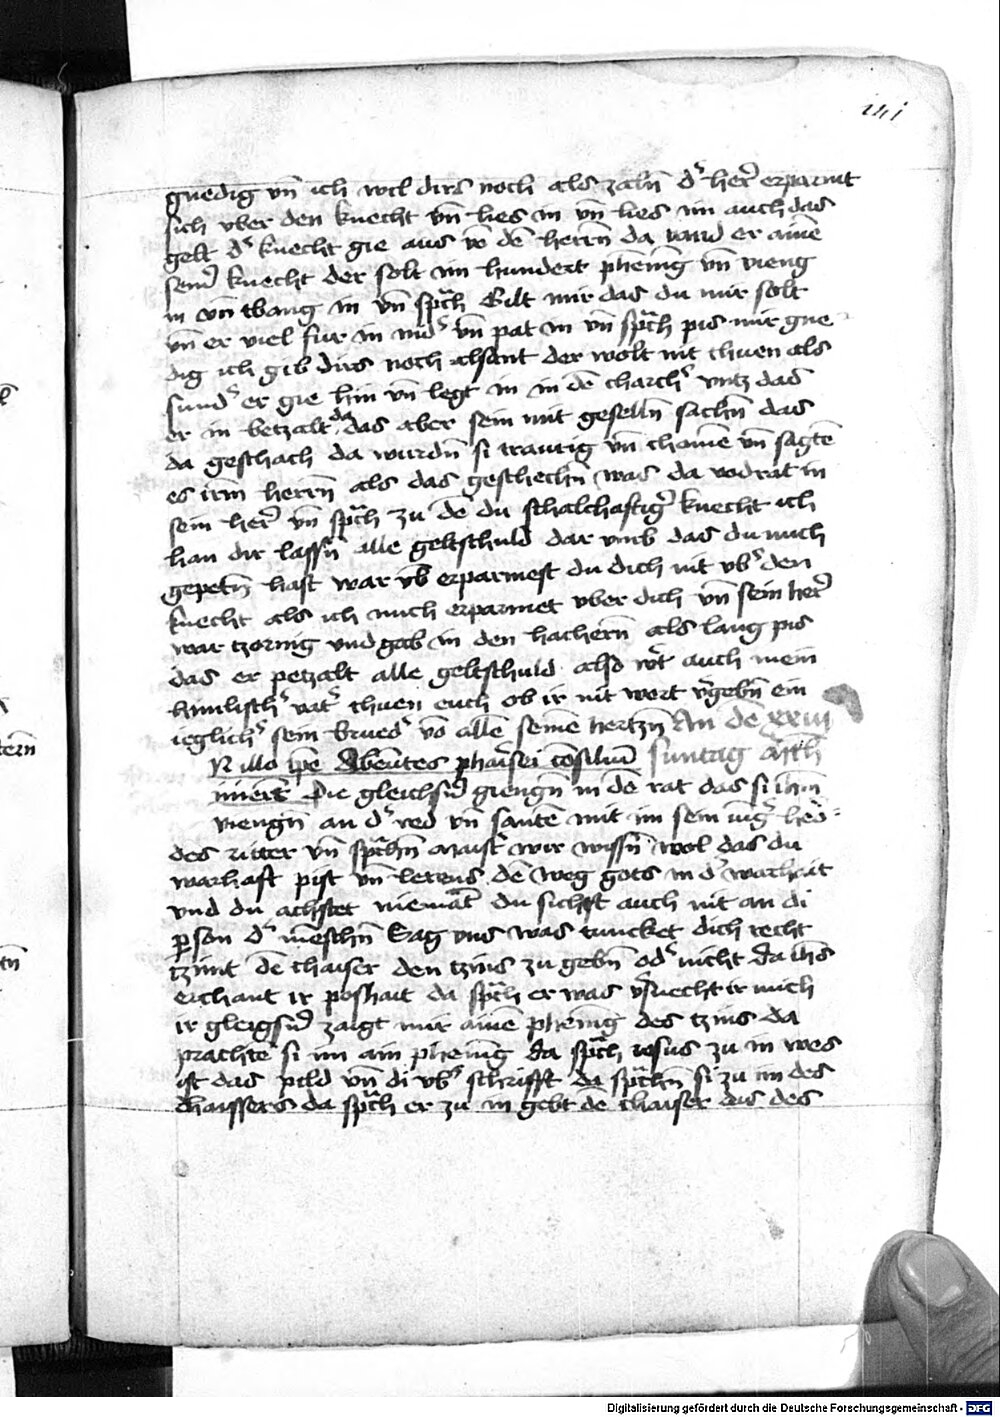 141
gnedig vn̄ ich wil dirs noch als zaln̄ d' her' erparmt
sich vber den knecht vn̄ lies in vn̄ lies im auch das
gelt d' knecht gie aus vō dē herrn̄ da vand er ainē
sein' knecht der solt im hundert phenīg vn̄ vieng
in vn̄ tbang in vn̄ sp̄ch Gilt mir das du mir solt
vn̄ er viel fur in nid' vn̄ pat in vn̄ sp̄ch pis mir gne
dig ich gib dirs noch alsant der wolt nit thuen als
sund' er gie hin vn̄ legt in in dē charch' vntz das
er in betzalt da das aber sein mit geselln̄ sachn̄ das
da geschach da wurdn̄ si traurig vn̄ chomē vn̄ sagtē
es irm herrn̄ als das geschechn̄ was da vodrat in
sein her' vn̄ sp̄ch zu dē du schalchaftig' knecht ich
han dir lassn̄ alle geltschuld dar vmb das du mich
gepetn̄ hast war vb̄ erparmest du dich nit vb' den
knecht als ich mich erparmet vber dich vn̄ sein her'
war tzornig vnd gab in den hachern̄ als lang pis
das er petzalt alle geltschuld also wt' auch mein
himlisch' vat' thuen euch ob ir nit wert v'gebn̄ ein
ieglich' sein brued' vō allē seinē hertzn̄ An dē xxiii
N illo tpē Abeūtes pharisei cōsiliū suntag
inierūt Die gleichsn' giengn̄ in dē rat das si ihm̄
viengn̄ an d' red vn̄ santē mit im sein iūg' hero
des ritter vn̄ sp̄chn̄ maist' wir wissn̄ wol das du
warhaft pist vn̄ lerens dē weg gots in d' warhait
vnd du achstet niemāt du sichst auch nit an di
p̱son d' mēschn̄ Sag vns was tuncket dich recht
tzimt dē chaiser den tzins zu gebn̄ od' nicht da ih̄s
erchant ir poshait da sp̄ch er was v'suecht ir mich
ir gleigsn' zaigt mir ainē phenīg des tzins da
prachtē si im ain phenīg da sp̄ch iesus zu in wes
ist das pild vn̄ di vb' schrifft da sp̄chn̄ si zu im des
chaissers da sp̄ch er zu in gebt dē chaiser das des
Digitalisierung gefördert durch die Deutsche Forschungsgemeinschaft - DFG